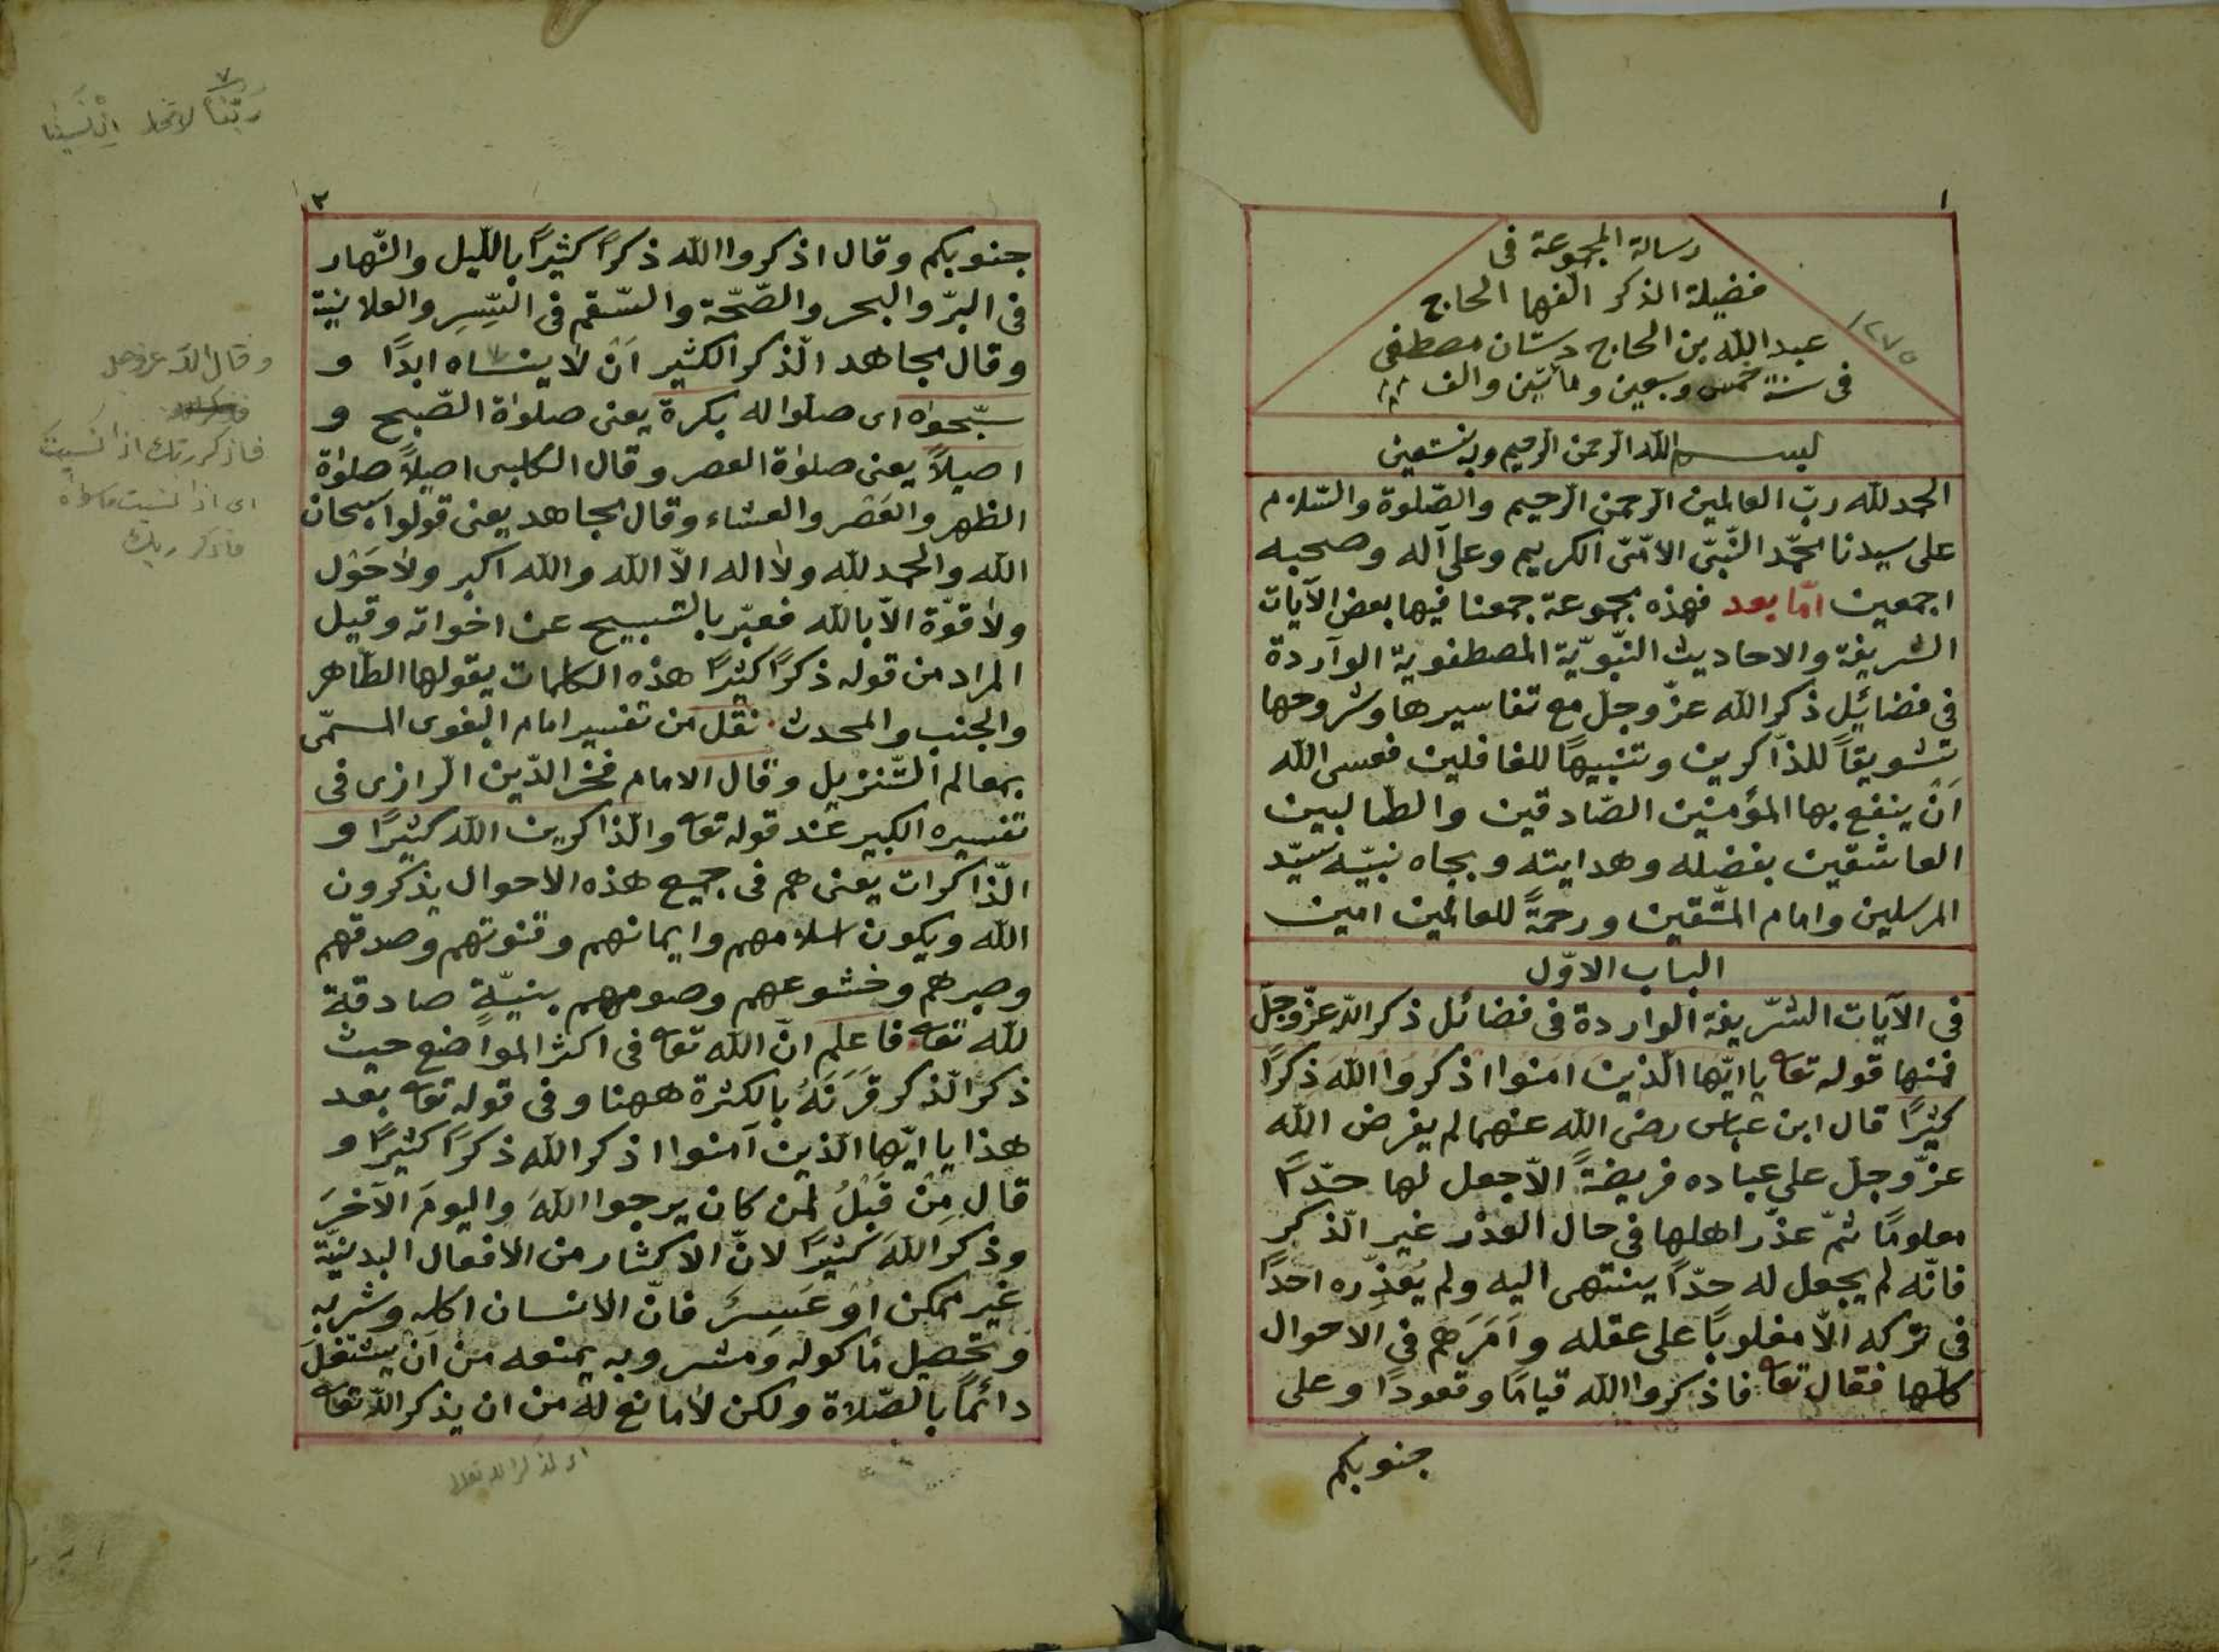 ١
رسالة المجموعة فى
فضيلة الذكر الفها الحاج
عبد الله بن الحاج دستان مصطفى
فى سنة خمس وسبعين ومأتين والف
١٢٧٥
بسم الله الرحمن الرحيم وبه نستعين
الحمد لله ربّ العالمين الرّحمن الرّحيم والصّلوة والسّلام
على سيدنا محمّد النّبىّ الامّىّ الكريم وعلى آله وصحبه
اجمعين امّا بعد فهذه مجموعة جمعنا فيها بعض الآيات
الشريفة والاحاديث النّبويّة المصطفوية الواردة
فى فضائيل ذكر الله عزّ وجلّ مع تفاسيرها وشروحها
تشويقاً للذّاكرين وتنبيهاً للغافلين فعسى الله
اَنْ ينفع بها المؤمنين الصّادقين والطّالبين
العاشقين بفضله وهدايته وبجاه نبيّه سيّد
المرسلين وامام المتّقين ورحمةً للعالمين امين
الباب الاوّل
فى الآيات الشّريفة الواردة فى فضائل ذكر الله عزّ وجلّ
فمنها قوله تعا يا ايّها الّذين امنوا اذكروا الله ذكرًا
كثيرًا قال ابن عباس رضى الله عنهما لم يفرض الله
عزّ وجلّ على عباده فريضةً الاّ جعل لها حدًّا
معلومًا ثمّ عذّر اهلها فى حال العذر غير الّذكر
فانّه لم يجعل له حدًّا ينتهى اليه ولم يُعَذِّره احدًا
فى تركه الاّ مغلوبًا على عقله وَاَمَرَهم فى الاحوال
كلّها فقال تعا فاذكروا الله قيامًا وقعودًا وعلى
جنوبكم
٢
جنوبكم وقال اذكروا الله ذكرًا كثيرًا بالّليل والنّهار
فى البرّ والبحر والصّحّة والسّقم فى السّرِ والعلانية
وقال مجاهد الّذكر الكثير اَنْ لا ينساه ابدًا و
سبّحوه اى صلوا له بكرة يعنى صلوٰة الصّبح و
اصيلاً يعنى صلوٰة العصر وقال الكلبى اصيلاً صلوٰة
الظهر والعَصْر والعشاء وقال مجاهد يعنى قولوا سبحان
الله والحمد لله ولا اله الاّ الله والله اكبر ولا حَوْل
ولا قوّة الاّ بالله فعبّر بالتسبيح عن اخواته وقيل
المراد من قوله ذكرًا كثيرًا هذه الكلمات يقولها الطّاهر
والجنب والمحدث نقل من تفسير امام البغوى المسمّى
بمعالم التّنزيل وقال الامام فخر الدّين الرازى فى
تفسيره الكبير عند قوله تعا والّذاكرين الله كثيرًا و
الّذاكرات يعنى هم فى جميع هذه الاحوال يذكرون
الله ويكون اسلامهم وايمانهم وقنوتهم وصدقهم
وصبرهم وخشوعهم وصومهم بنيّةٍ صادقة
لله تعا فاعلم انّ الله تعا فى اكثر المواضع حيث
ذكر الّذكر قَرَنَهُ بالكثرة ههنا وفى قوله تعا بعد
هذا يا ايّها الّذين آمنوا اذكر الله ذكرًا كثيرًا و
قال مِنْ قَبْلُ لمن كان يرجوا اللهَ واليومَ الآخرَ
وذكر اللهَ كثيرًا لانّ الاكثار من الافعال البدنيّة
غير ممكن اَو عَسِرَ فانّ الانسان اكله وشربه
وتحصيل مأكوله ومشروبه يمنعه من اَنْ يشتغلَ
دائمًا بالصّلاة ولكن لا مانع له من ان يذكر الله تعا
ربّنا لا اِنْ نَسِينا
وقال الله عز وجل
فاذكر ربّك اذا نسيت
اى اذا نسيت ما سواه
فاذكر ربك